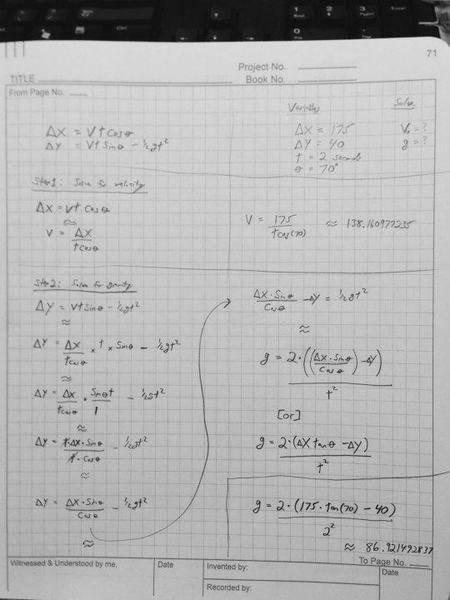 71
Project No.
TITLE
Book No.
From Page No.
Variables
Solve
ΔX = Vt cosθ
ΔY = Vt sinθ - ½gt²
ΔX = 175
V₀ = ?
ΔY = 40
g = ?
t = 2 seconds
θ = 70°
Step 1: Solve for velocity
ΔX = Vt cosθ
≈
V = ΔX / tcosθ
V = 175 / tcos(70) ≈ 138.160977235
Step 2: Solve for gravity
ΔY = Vt sinθ - ½gt²
≈
ΔY = ΔX / tcosθ × t × sinθ - ½gt²
≈
ΔY = ΔX / tcosθ * sinθt / 1 - ½gt²
≈
ΔY = t·ΔX·sinθ / t·cosθ - ½gt²
≈
ΔY = ΔX·sinθ / cosθ - ½gt²
≈
ΔX·sinθ / cosθ - ΔY = ½gt²
≈
g = 2·((ΔX·sinθ / cosθ) - ΔY) / t²
[or]
g = 2·(ΔX tanθ - ΔY) / t²
g = 2·(175·tan(70) - 40) / 2²
≈ 86.921492837
To Page No.
Witnessed & Understood by me,
Date
Invented by:
Date
Recorded by: